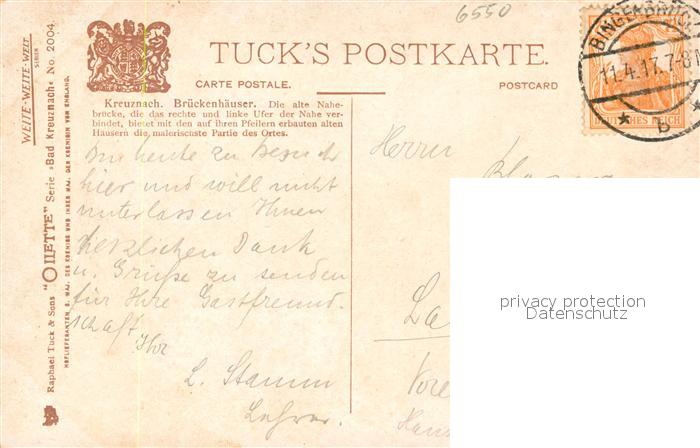 6550
TUCK'S POSTKARTE.
CARTE POSTALE.
POSTCARD
BINGERBRÜCK
11.4.17. 7-8 N
* b *
DEUTSCHES REICH
Kreuznach. Brückenhäuser. Die alte Nahe-
brücke, die das rechte und linke Ufer der Nahe ver-
bindet, bietet mit den auf ihren Pfeilern erbauten alten
Häusern die malerischste Partie des Ortes.
Bin heute zu Besuch
hier und will nicht
unterlassen Ihnen
herzlichen Dank
u. Grüße zu senden
für Ihre Gastfreund-
schaft.
Ihr
L. Stamm
Lehrer.
Herrn
privacy protection
Datenschutz
WEITE-WEITE-WELT
SERIEN
Raphael Tuck & Sons "OILETTE" Serie »Bad Kreuznach« No. 2004.
HOFLIEFERANTEN S. MAJ. DES KOENIGS UND IHRER MAJ. DER KOENIGIN VON ENGLAND.